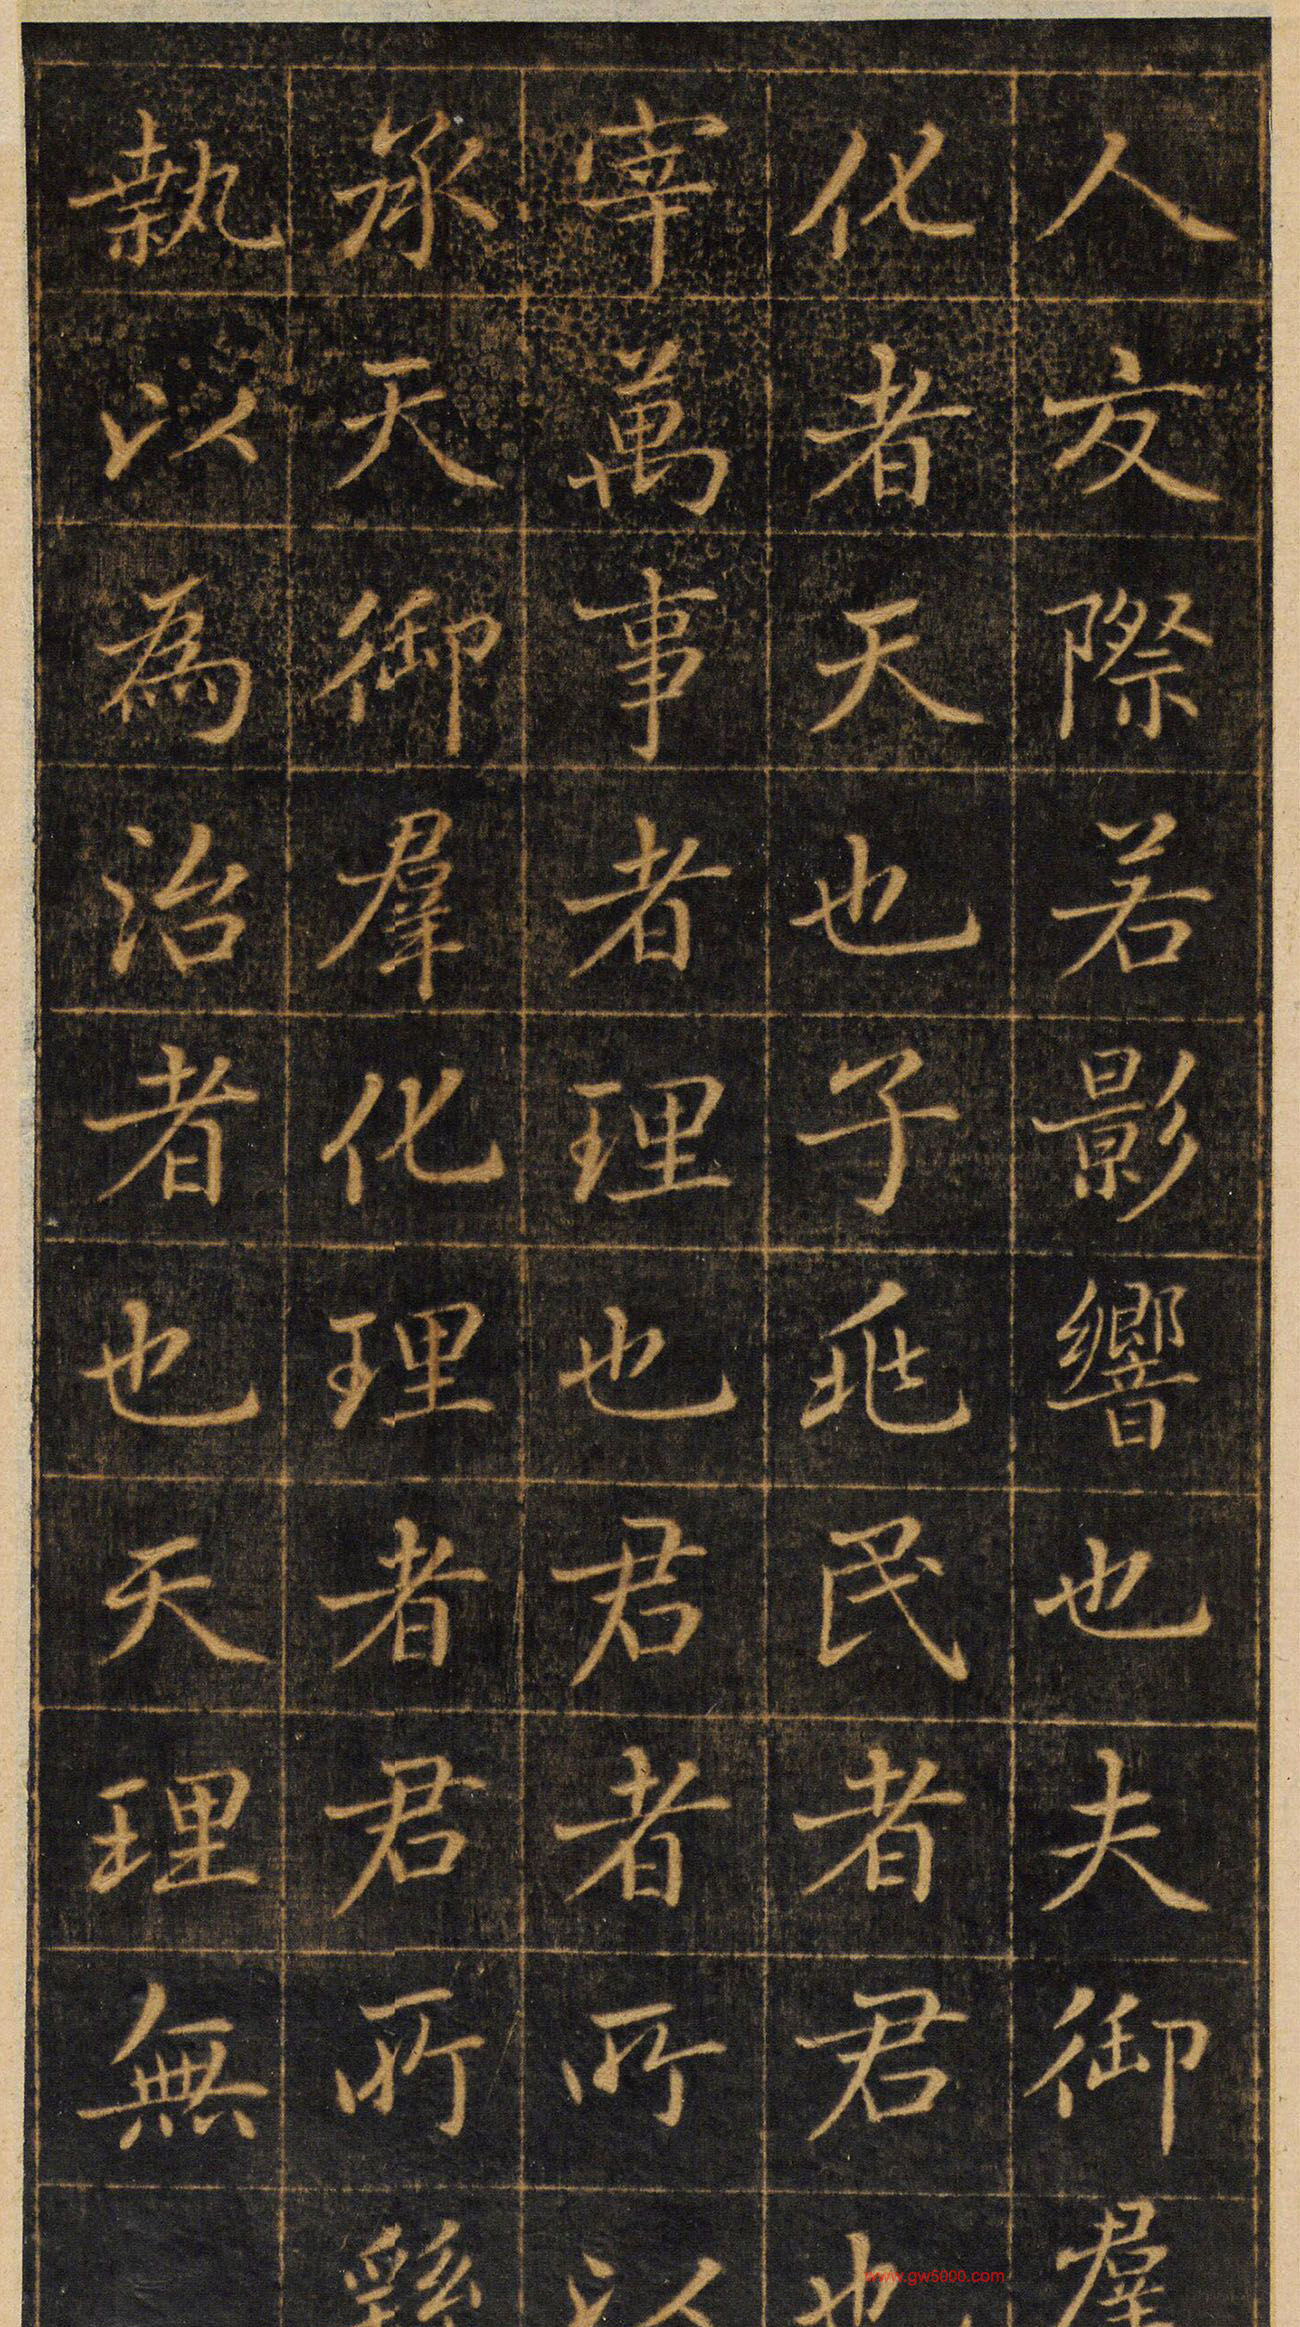 人友際若影響也夫御羣
化者天也子兆民者君也
宰萬事者理也君者所以
承天御羣化理者君所繇
執以為治者也天理無
www.gw5000.com